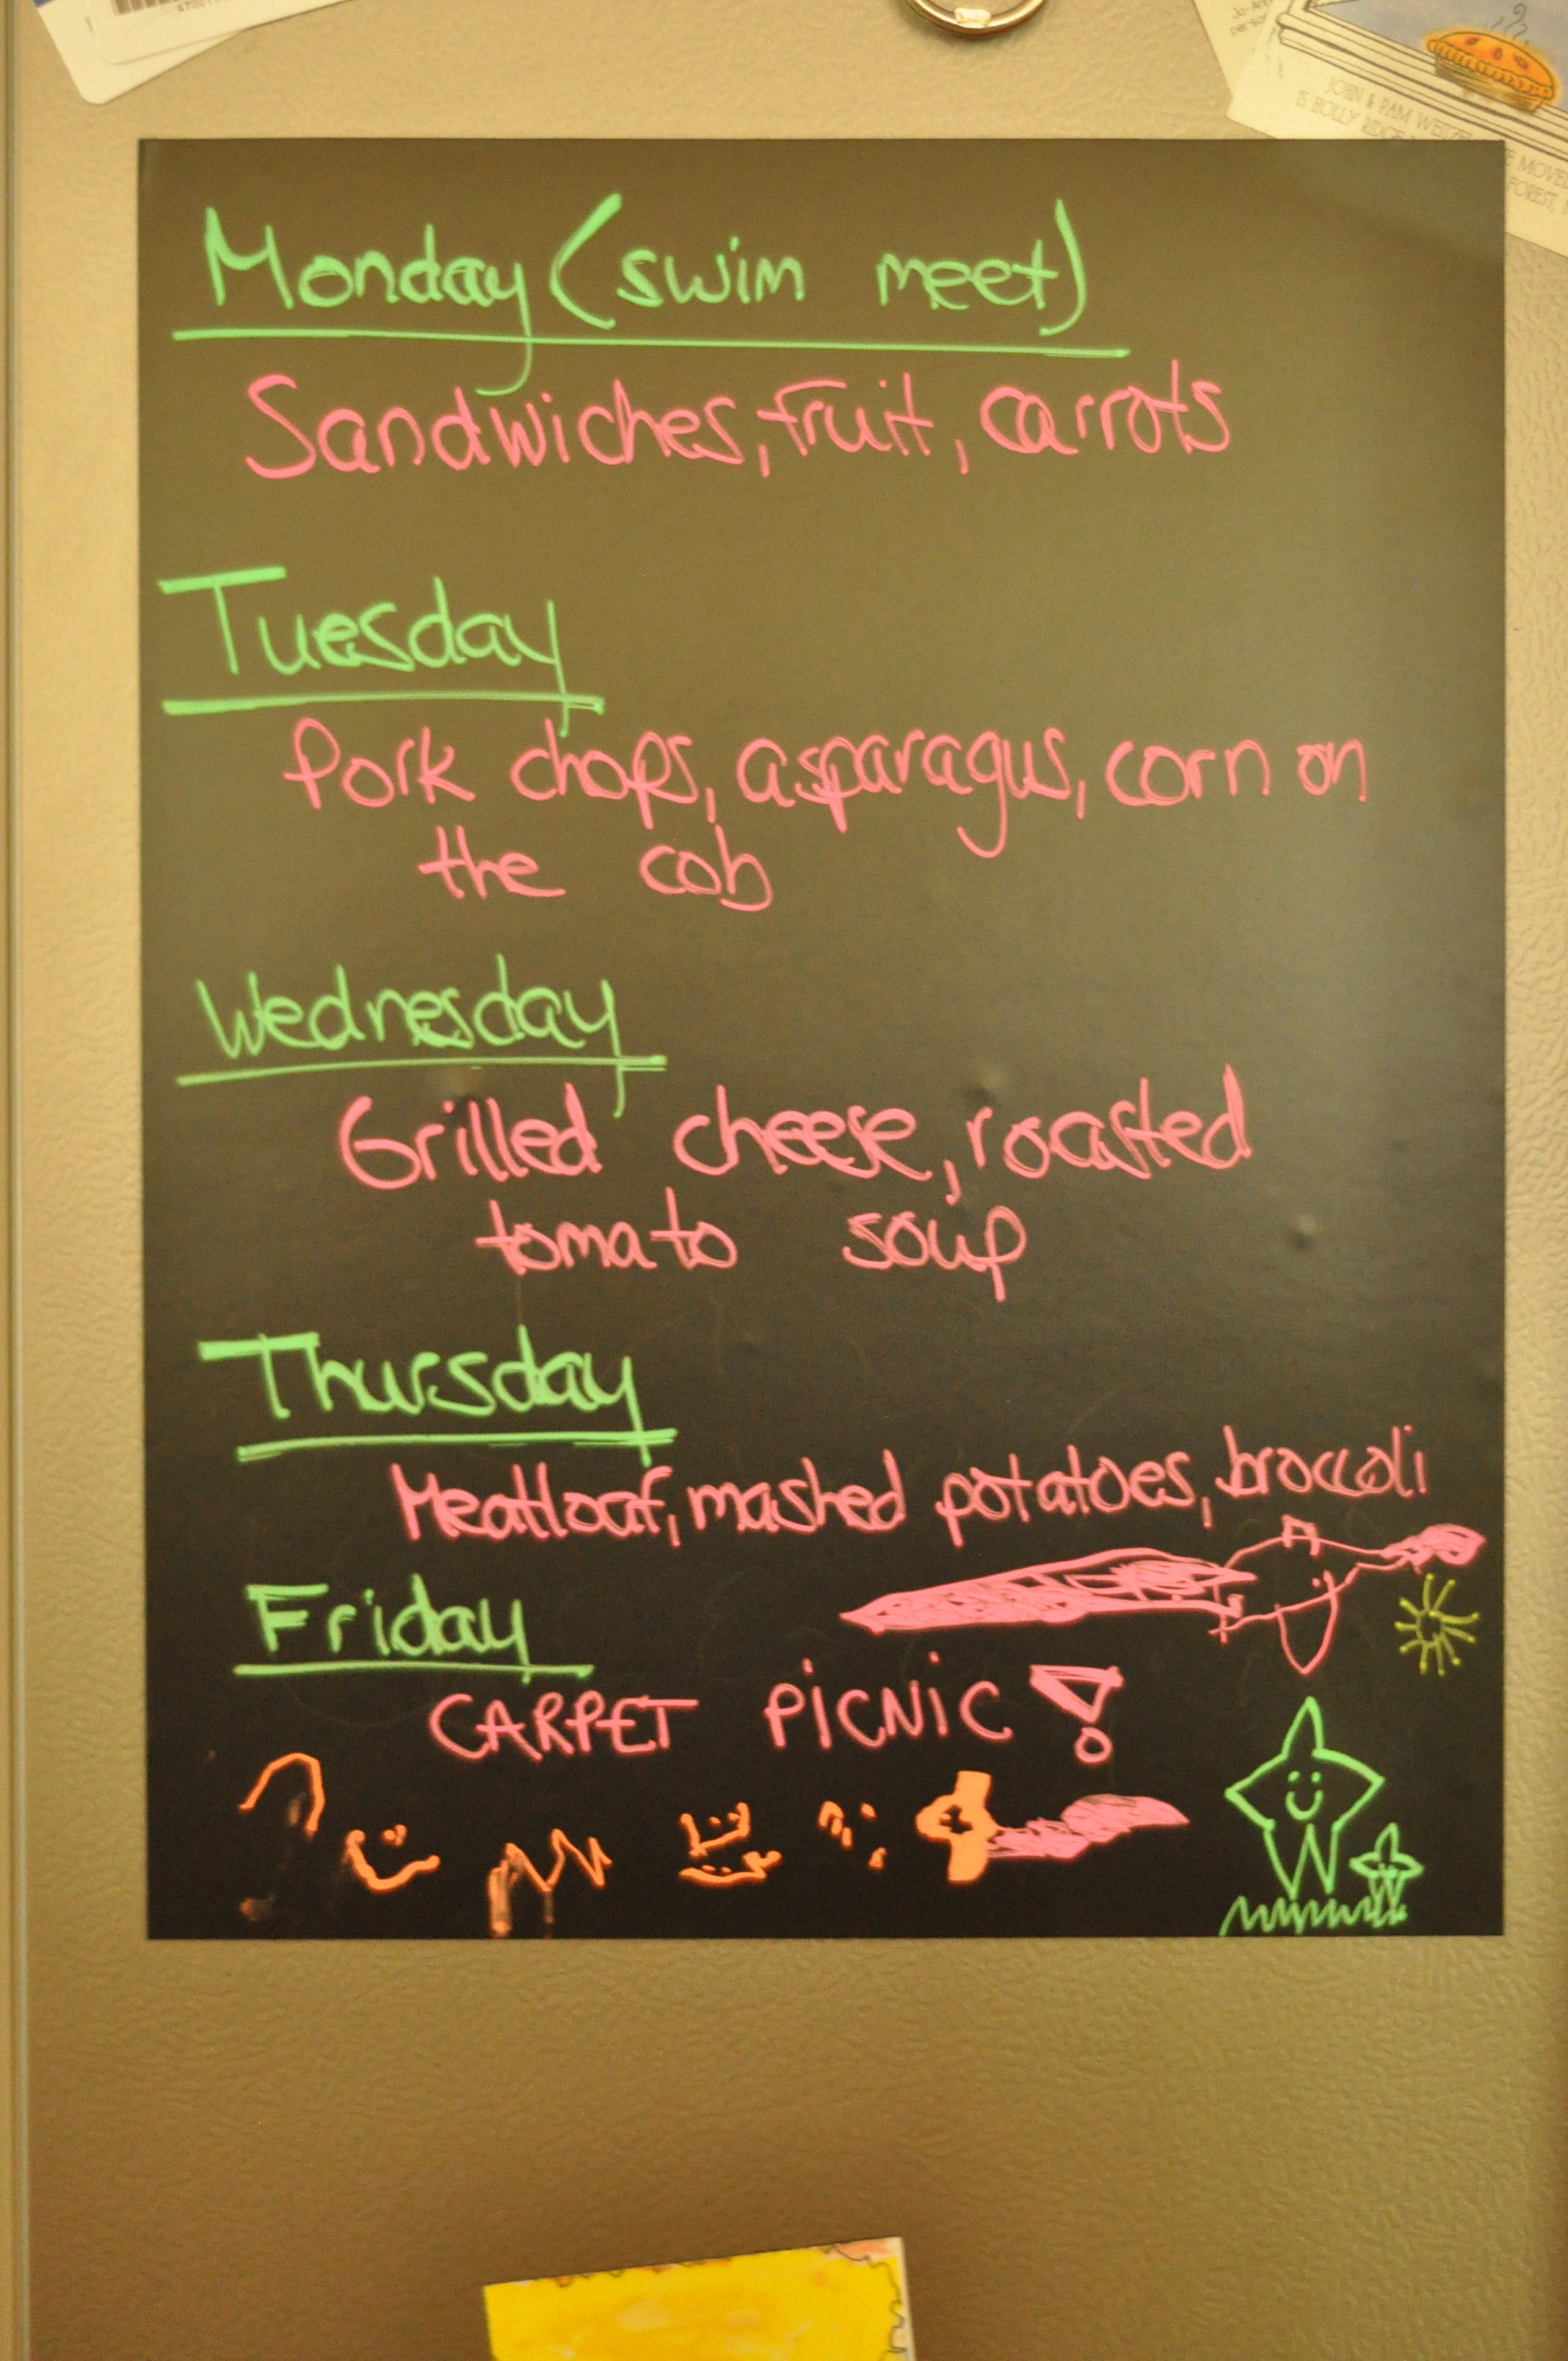 JOHN & PAM
15 HOLLY RIDGE
Monday (swim meet)
Sandwiches, fruit, carrots
Tuesday
Pork chops, asparagus, corn on
the cob
Wednesday
Grilled cheese, roasted
tomato soup
Thursday
Meatloaf, mashed potatoes, broccoli
Friday
CARPET PiCNiC!